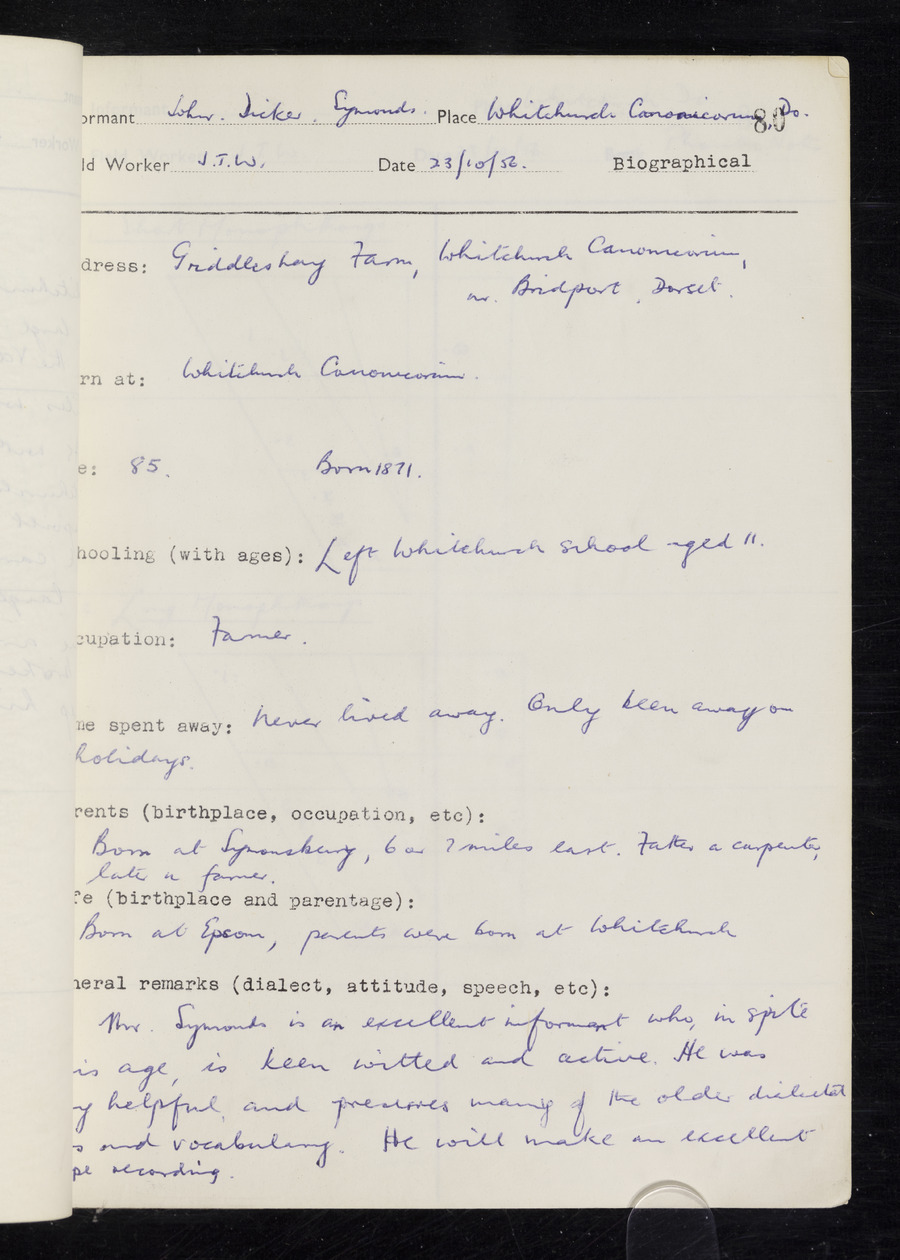 ormant John. Dicker. Symonds. Place Whitchurch Canonicorum, Do.
80
ld Worker J.T.W. Date 23/10/56. Biographical
dress: Griddleshay Farm, Whitchurch Canonicorum,
nr. Bridport, Dorset.
rn at: Whitchurch Canonicorum.
e: 85. Born 1871.
hooling (with ages): Left Whitchurch School aged 11.
cupation: Farmer.
me spent away: Never lived away. Only been away on
holidays.
rents (birthplace, occupation, etc):
Born at Symonsbury, 6 or 7 miles east. Father a carpenter,
later a farmer.
fe (birthplace and parentage):
Born at Epsom, parents were born at Whitchurch
neral remarks (dialect, attitude, speech, etc):
Mr. Symonds is an excellent informant who, in spite
is age, is keen witted and active. He was
y helpful, and preserves many of the older dialectal
s and vocabulary. He will make an excellent
pe recording.